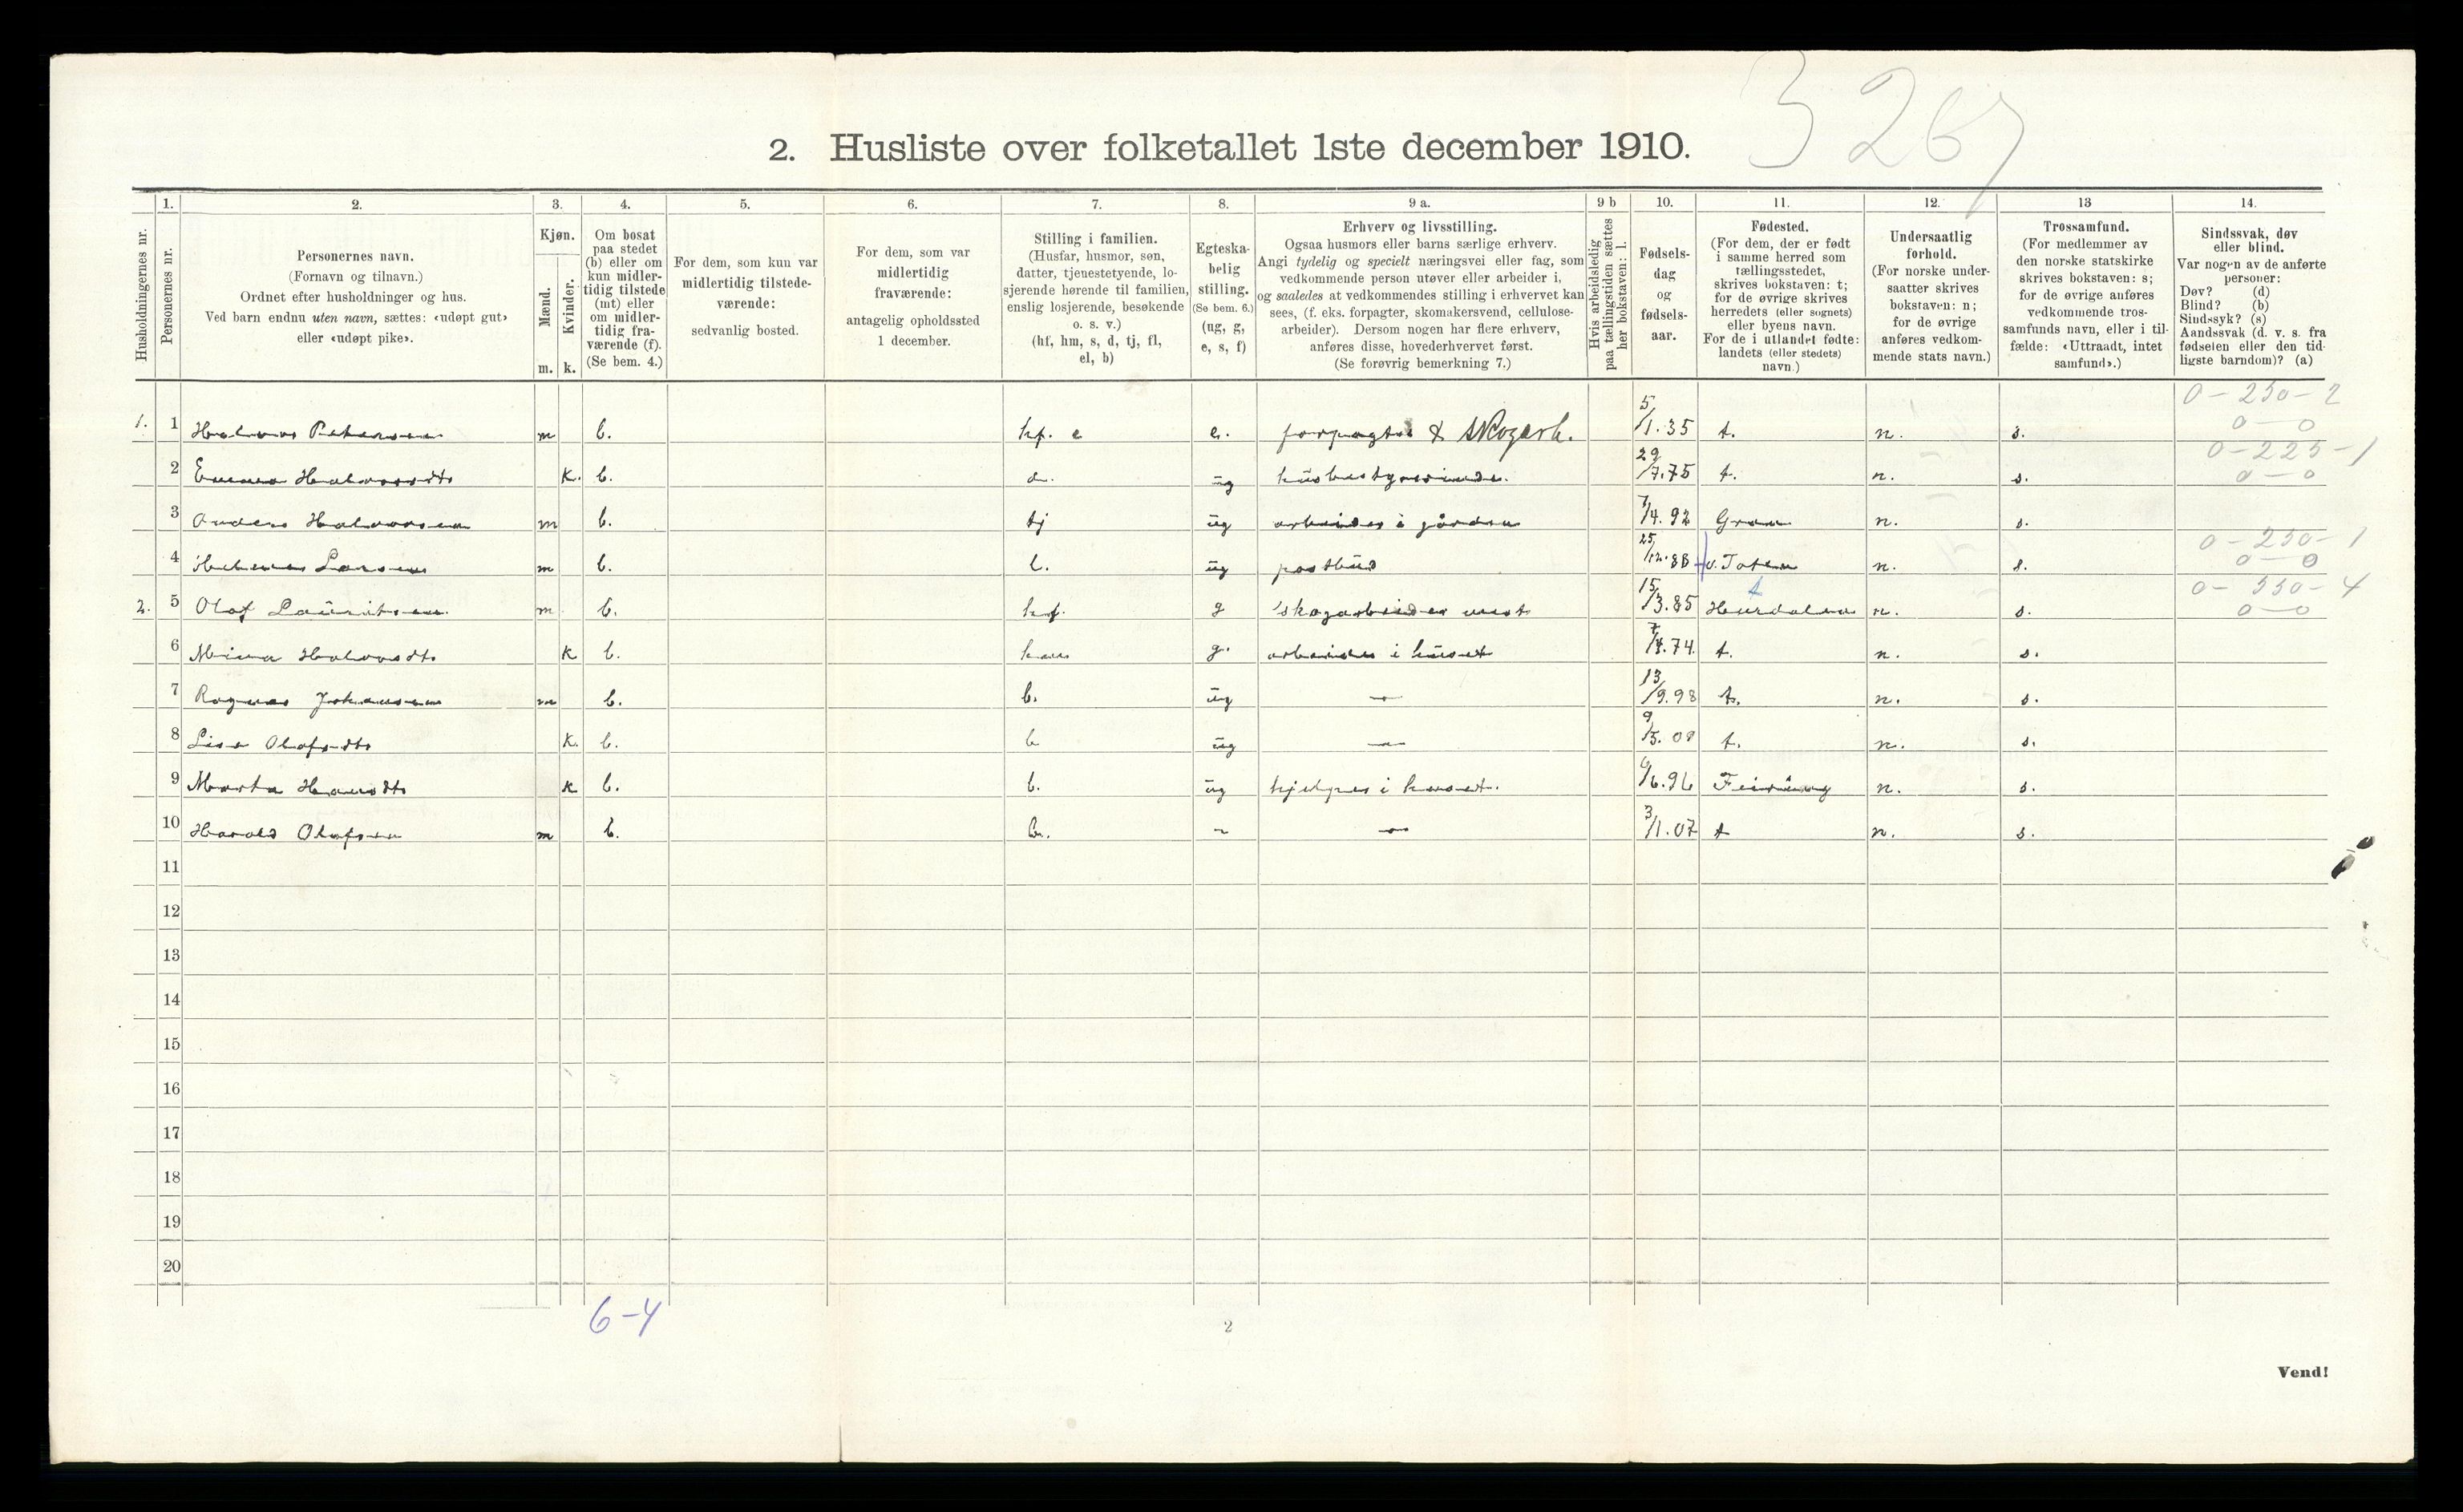 3267
2. Husliste over folketallet 1ste december 1910.
Husholdningernes nr.
1. Personernes nr.
2. Personernes navn.
(Fornavn og tilnavn.)
Ordnet efter husholdninger og hus.
Ved barn endnu uten navn, sættes: «udøpt gut»
eller «udøpt pike».
3. Kjøn.
Mænd. Kvinder.
m. k.
4. Om bosat
paa stedet
(b) eller om
kun midler-
tidig tilstede
(mt) eller
om midler-
tidig fra-
værende (f).
(Se bem. 4.)
5. For dem, som kun var
midlertidig tilstede-
værende:
sedvanlig bosted.
6. For dem, som var
midlertidig
fraværende:
antagelig opholdssted
1 december.
7. Stilling i familien.
(Husfar, husmor, søn,
datter, tjenestetyende, lo-
sjerende hørende til familien,
enslig losjerende, besøkende
o. s. v.)
(hf, hm, s, d, tj, fl,
el, b)
8. Egteska-
belig
stilling.
(Se bem. 6.)
(ug, g,
e, s, f)
9 a. Erhverv og livsstilling.
Ogsaa husmors eller barns særlige erhverv.
Angi tydelig og specielt næringsvei eller fag, som
vedkommende person utøver eller arbeider i,
og saaledes at vedkommendes stilling i erhvervet kan
sees, (f. eks. forpagter, skomakersvend, cellulose-
arbeider). Dersom nogen har flere erhverv,
anføres disse, hovederhvervet først.
(Se forøvrig bemerkning 7.)
9 b Hvis arbeidsledig
paa tællingstiden sættes
her bokstaven: l.
10. Fødsels-
dag
og
fødsels-
aar.
11. Fødested.
(For dem, der er født
i samme herred som
tællingsstedet,
skrives bokstaven: t;
for de øvrige skrives
herredets (eller sognets)
eller byens navn.
For de i utlandet fødte:
landets (eller stedets)
navn.)
12. Undersaatlig
forhold.
(For norske under-
saatter skrives
bokstaven: n;
for de øvrige
anføres vedkom-
mende stats navn.)
13 Trossamfund.
(For medlemmer av
den norske statskirke
skrives bokstaven: s;
for de øvrige anføres
vedkommende tros-
samfunds navn, eller i til-
fælde: «Uttraadt, intet
samfund».)
14. Sindssvak, døv
eller blind.
Var nogen av de anførte
personer:
Døv? (d)
Blind? (b)
Sindssyk? (s)
Aandssvak (d. v. s. fra
fødselen eller den tid-
ligste barndom)? (a)
0-250-2
1. 1 Halvor Petersen m b. hf. e e. forpagter & skogarb. 5/1.35 t. n. s. 0-0
0-225-1
2 Emma Halvorsdt k. b. d. ug husbestyrerinde. 29/7.75 t. n. s. 0-0
3 Anders Halvorsen m b. tj ug arbeider i gården 7/4.92 Gran n. s.
0-250-1
4 Larsen m b. l. ug postbud 25/12.88 v. Toten n. s. 0-0
t 0-550-4
2. 5 Olaf Lauritsen m b. hf. g skogarbeider 15/3.85 Hurdalen n. s. 0-0
6 Mina Halvorsdt. k b. g. arbeider i huset 7/4.74 t. n. s.
7 Ragnar Johansen m b. b. ug 13/9.98 t. n. s.
8 Lisa Olafsdt k. b. b ug 9/5.08 t. n. s.
9 Marta Hansdt k b. b. ug hjelper i huset. 6/6.96 Feiring n. s.
10 Harald Olafsen m b. b. 3/1.07 t n. s.
11
12
13
14
15
16
17
18
19
20
6-4
2
Vend!